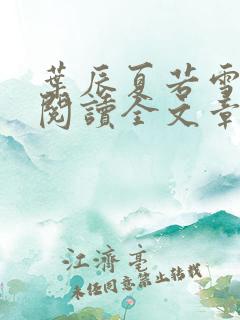 葉辰夏若雪
閱讀全文章
江濟亳
未经同意禁止转载